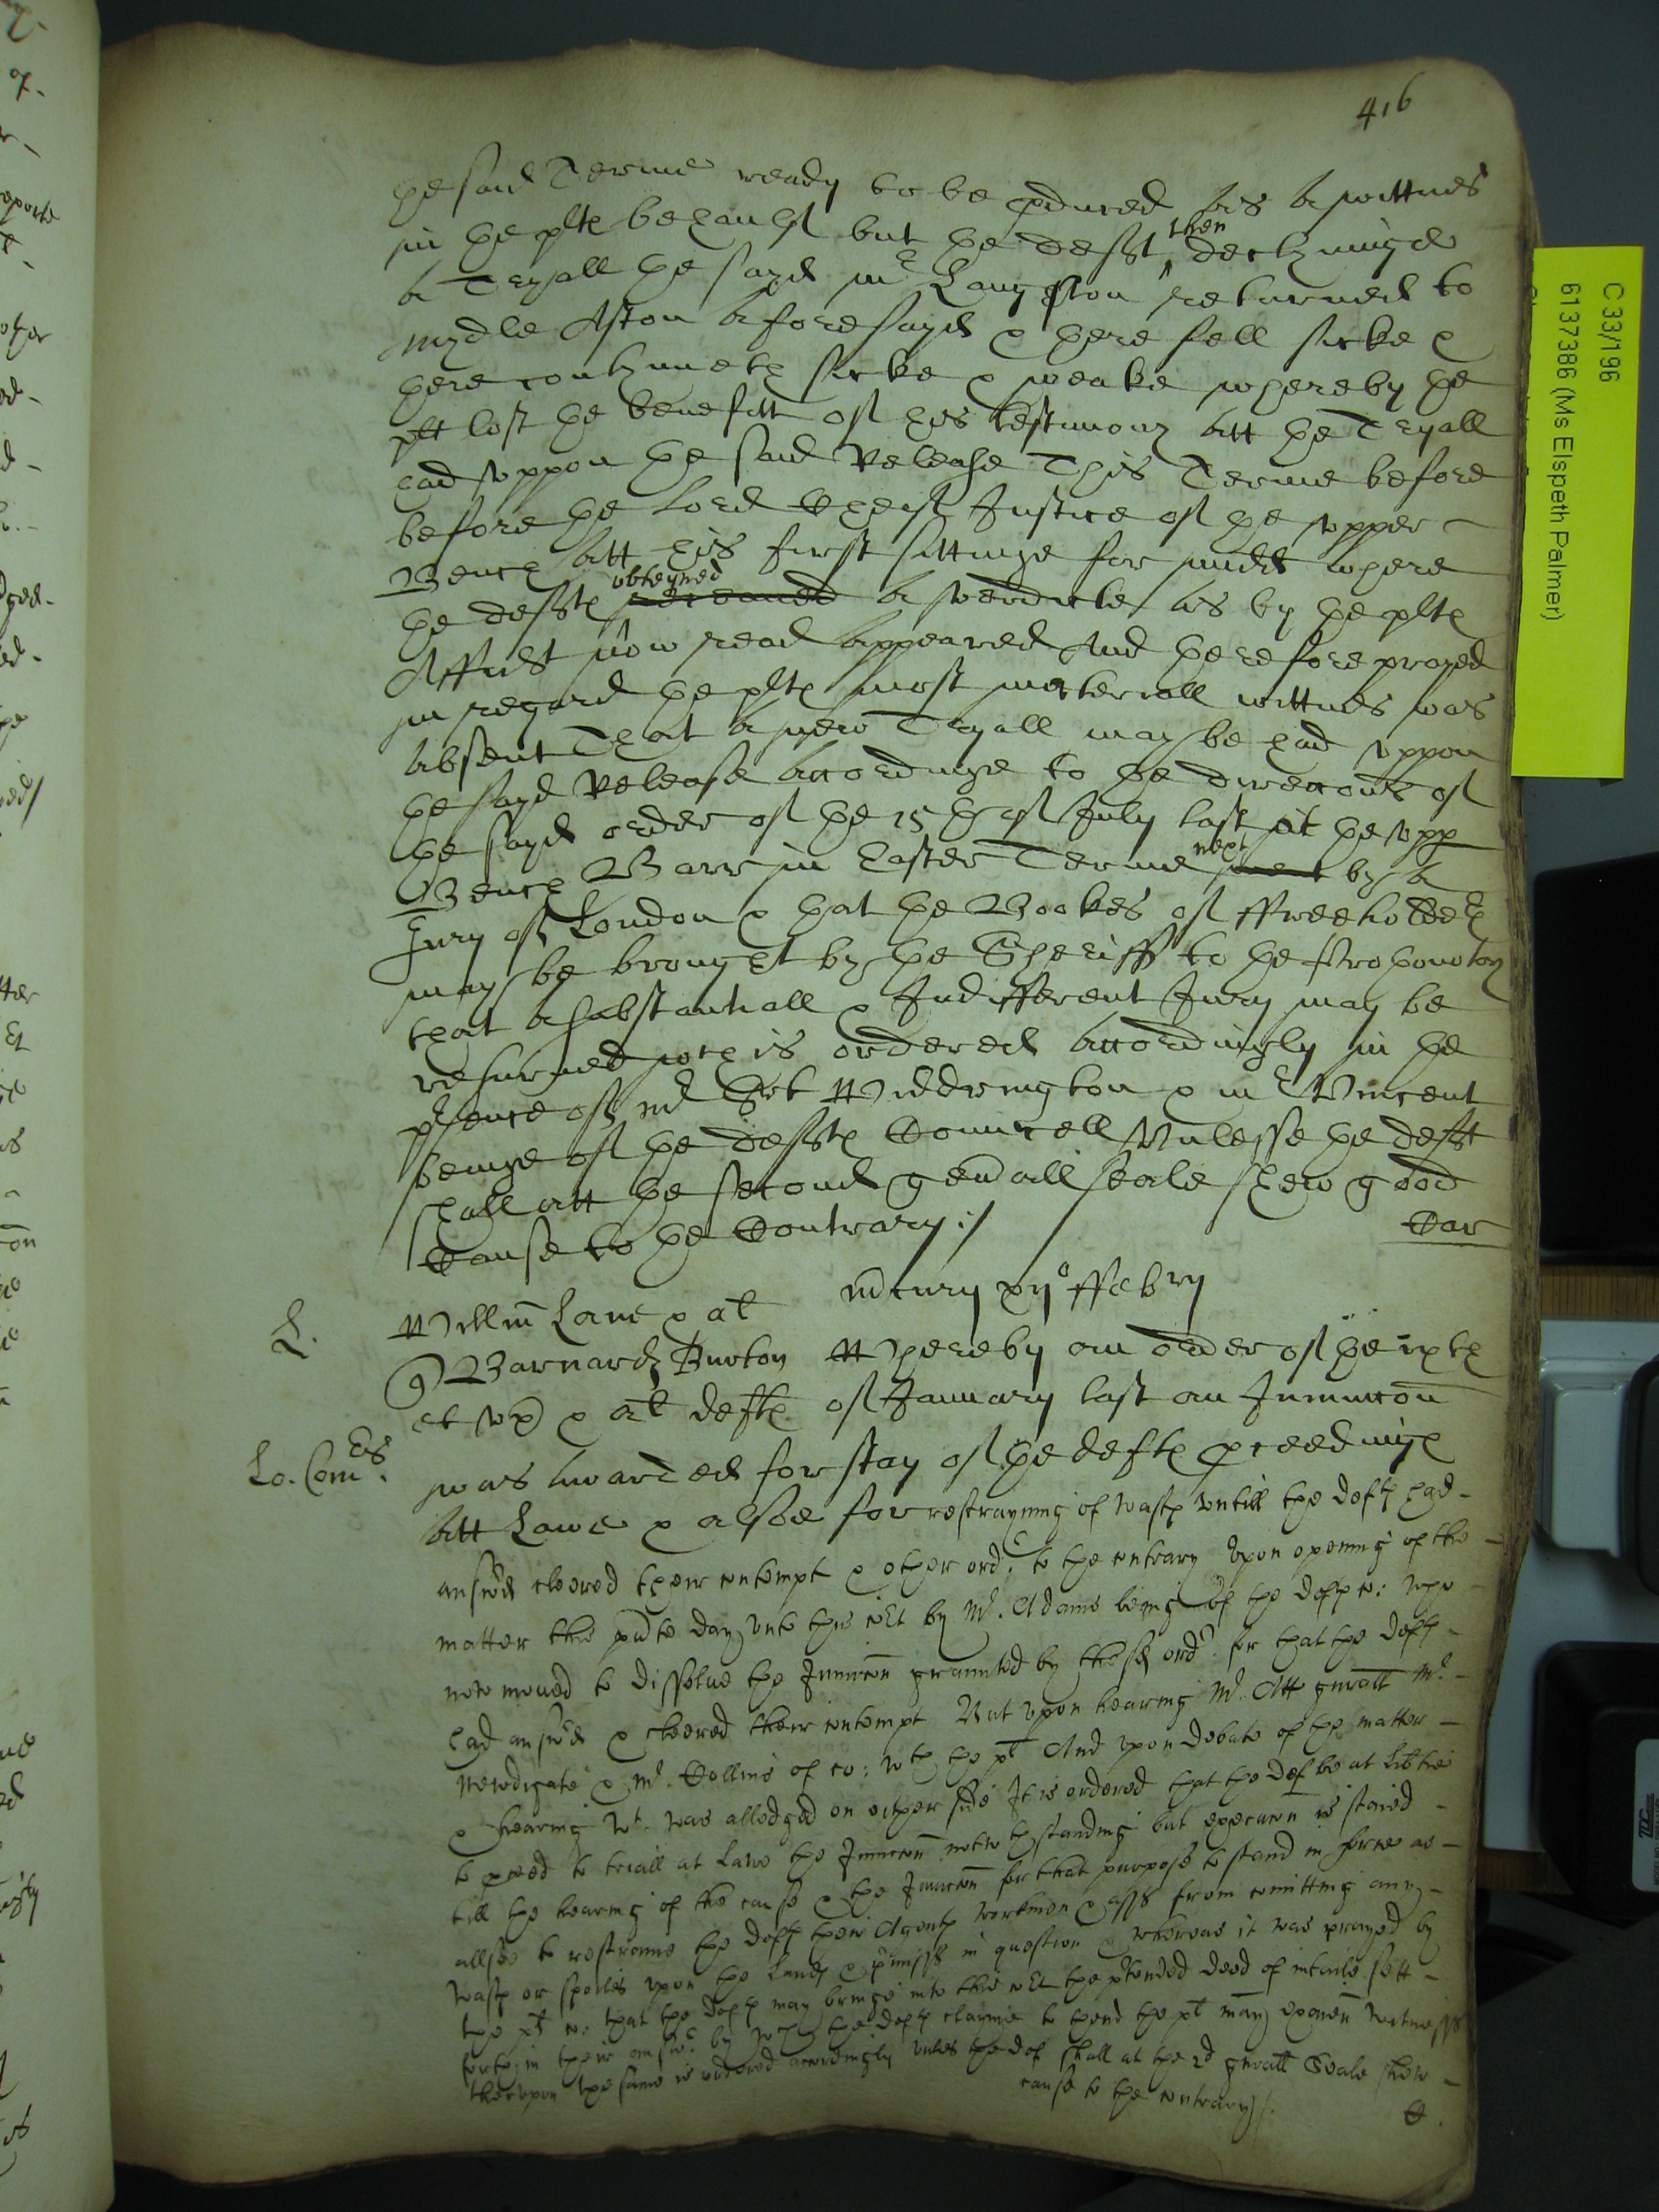 416
the said Terme ready to be pduced as a wittnes
in the plts behaulf but the defft then declyninge
a Tryall the sayd mr Langston returned to
Mydle Aston aforesayd & there fell sicke &
there contynueth sicke & weake whereby the
plt lost the benefitt of his testimony att the Tryall
had uppon the said Release This Terme before
before the Lord Cheif Justice of the upper
Bench att his first sittinge for midds where
the deffts receaued obteyned a verdicte as by the plts
Affidt now read appeared And therefore prayed
in regard the plts most materiall wittnes was
absent That a new Tryall may be had uppon
the sayd Release accordinge to the direccons of
the sayd order of the 15th of July last at the upp
Bench Barr in Easter Terme next by a
Jury of London & that the Bookes of ffreeholders
may be brought by the Sheriff to the Prothonotary
that a substantiall & Indifferent Jury may be
returned wch is ordered accordingly in the
psence of mr Sert Widdrington & mr Vincent
beinge of the deffts Councell Unlesse the defft
shall att the second genall seale shew good
Cause to the Contrary :/
Car
mcury xijo ffebry
L.
Willm Lane & al
Barnard Turton
et ux & al defts
Whereby an order of the ixth
of January last an Iniunccon
Lo. Comrs.
was awarded for stay of the defts pceedings
att Lawe & alsoe for restrayning of wasts untill the defts had
answed cleered their contempt & other ordr to the contrary Upon opening of the
matter this psnte day unto this cort by Mr. Adams being of the defts co: who
now moued to dissolue the Iniunccon graunted by the sd ordr for that the defts
had answed & cleered their contempt But upon hearing Mr. Att genall Mr.
Newdigate & Mr. Collins of co: wth the plt And upon debate of the matter
& hearing wt. was alledged on either side It is ordered that the def be at Libtie
to pceed to triall at Lawe the Iniunccon notwthstanding but execucon is staied
till the hearing of the cause & the Iniunccon for that purpose to stand in force as
allsoe to restraine the defts their Agents workmen & asss from comitting any
wasts or spoiles upon the Lands & pmisss in question & whereas it was prayed by
the plts co: that the defts may bringe into this cort the ptended deed of intaile sett
forth in their answr by wch the defts clayme to thend the plt may examin witnesses
thereupon the same is ordered accordingly unles the def shall at the 2d genall Seale shew
cause to the contrary /.
C.
C 33/196
6137386 (Ms Elspeth Palmer)